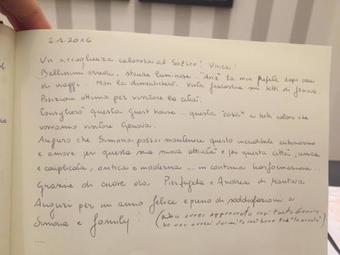 2.1.2016
Un accoglienza calorosa al Solito! Unica!
Bellissimi arredi, stanze luminose. "Aria" la mia preferita dopo ore
di viaggi... Non la dimenticherò. Vista fantastica sui tetti di Genova.
Posizione ottima per visitare la città.
Consiglierò questa Guest house. questa "casa" a tutti coloro che
vorranno visitare Genova.
Auguro che Simona possa mantenere questo incredibile entusiasmo
e amore per questa sua nuova attività e per questa città, unica
e complicata, antica e moderna... in continua trasformazione..
Grazie di cuore da, Pierfugela e Andrea di Mantova
Auguri per un anno felice e pieno di soddisfazioni a
Simona e family! (
....